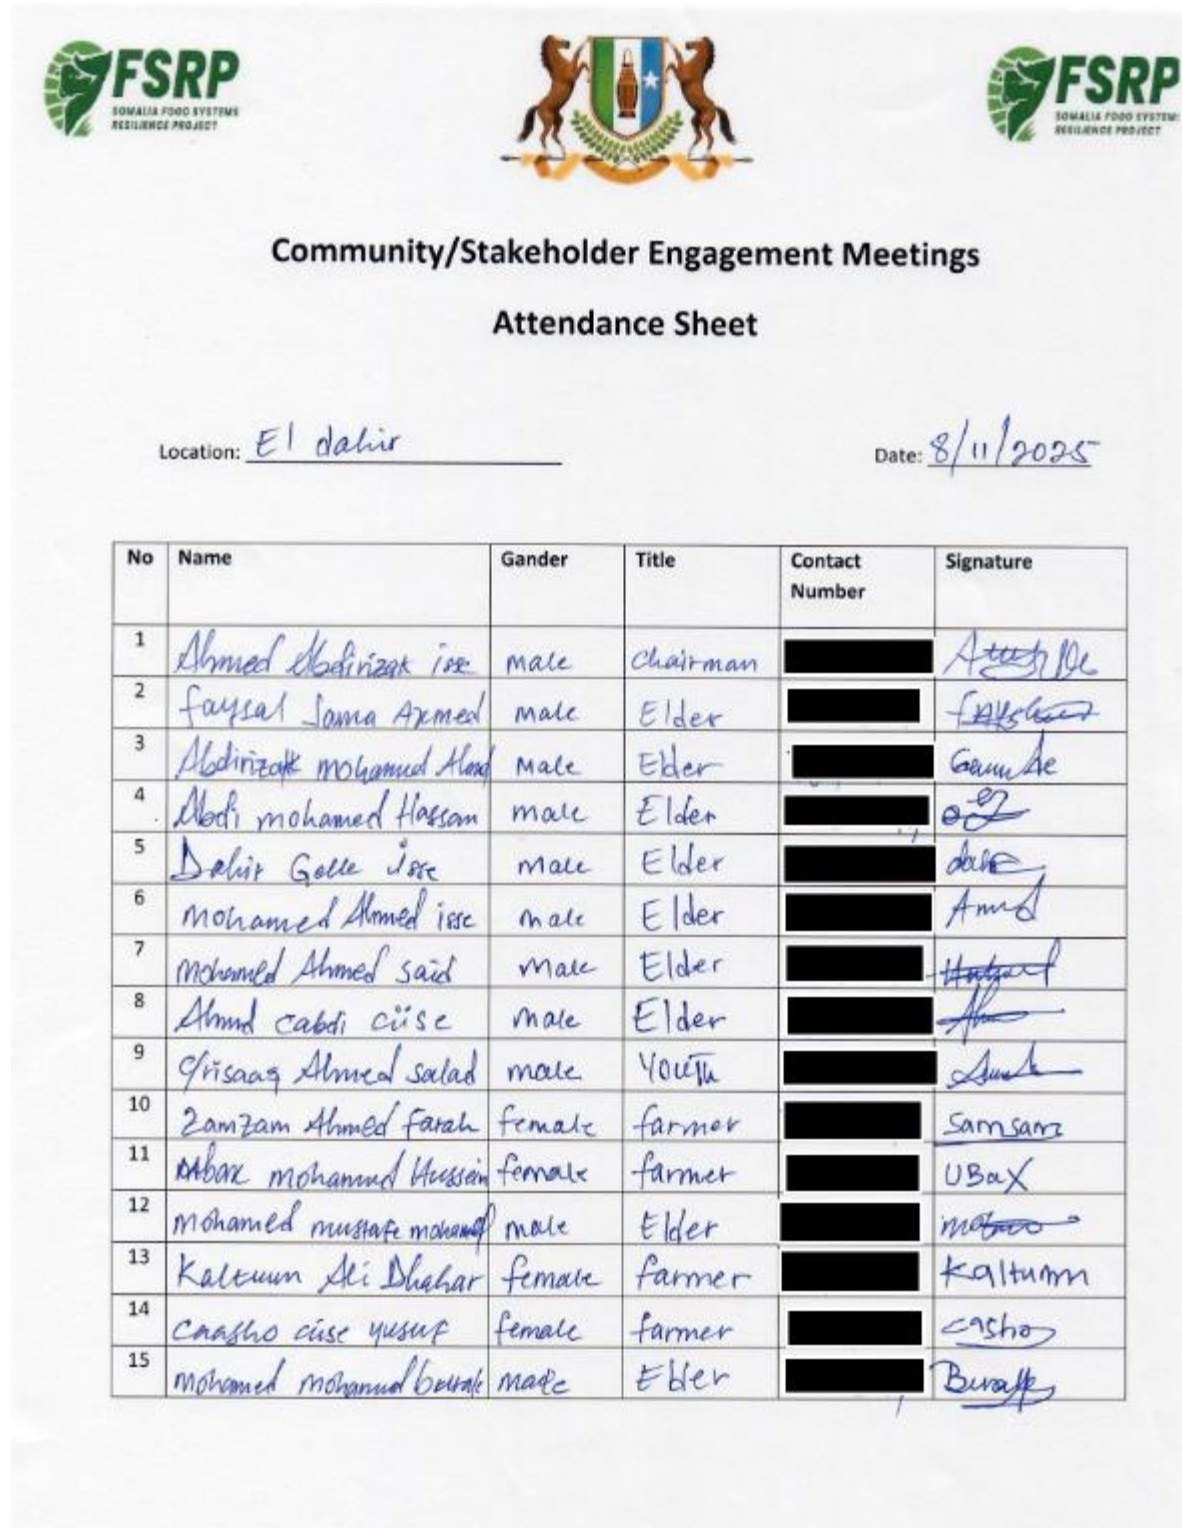 FSRP
SOMALIA FOOD SYSTEMS
RESILIENCE PROJECT
FSRP
SOMALIA FOOD SYSTEMS
RESILIENCE PROJECT
Community/Stakeholder Engagement Meetings
Attendance Sheet
Location: El dahir
Date: 8/11/2025
No Name Gander Title Contact Number Signature
1 Ahmed Abdirizak isse male chairman
2 faysal Jama Axmed male Elder
3 Abdirizak mohamed Ahmed Male Elder
4 Abdi mohamed Hassan male Elder
5 Dahir Gelle isse male Elder dahir
6 mohamed Ahmed isse male Elder
7 mohamed Ahmed said male Elder
8 Ahmd cabdi ciise male Elder
9 c/risaaq Ahmed salad male Youth
10 Zamzam Ahmed Farah female farmer Samsam
11 mohamud Hussein female farmer UBaX
12 mohamed mustafe mohamed male Elder
13 Kaltuun Ali Dhahar female farmer Kaltumn
14 Caasho ciise yusuf female farmer casho
15 mohamed mohamud male Elder